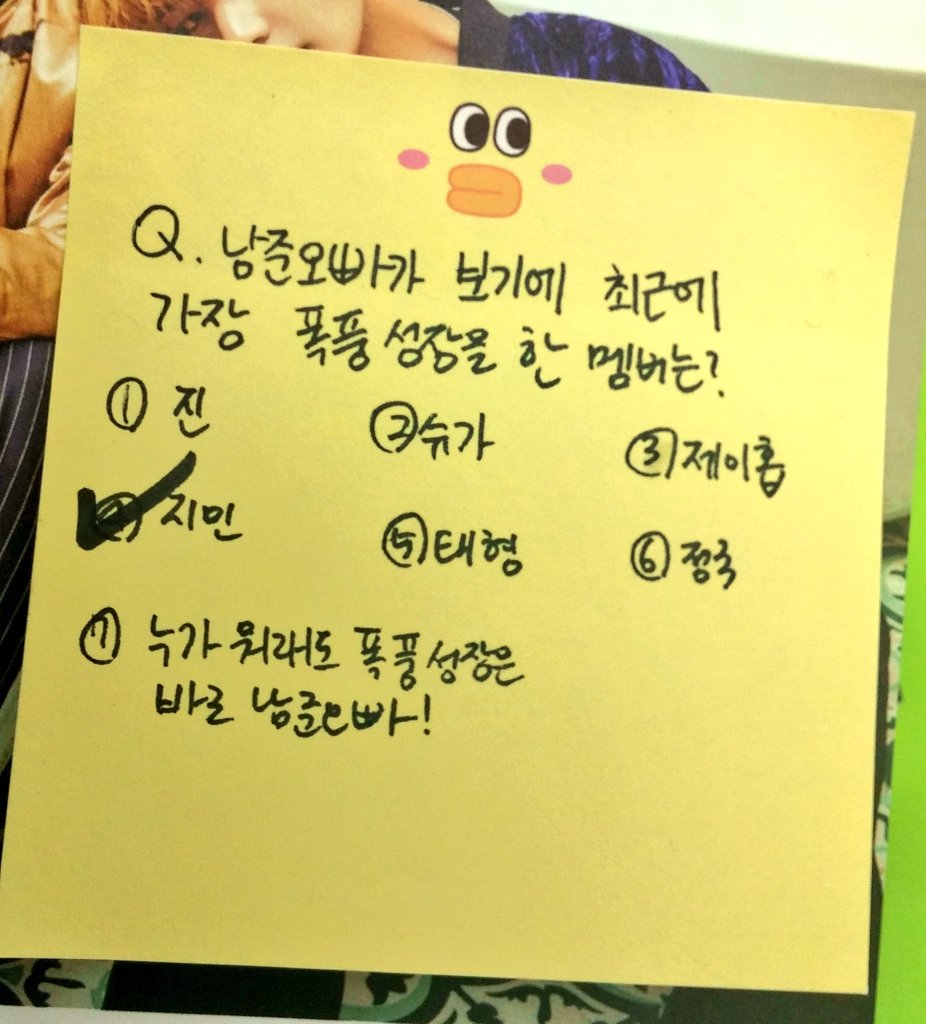 Q. 남준오빠가 보기에 최근에
가장 폭풍성장을 한 멤버는?
① 진 ② 슈가 ③ 제이홉
④ 지민 ⑤ 태형 ⑥ 정국
⑦ 누가 뭐래도 폭풍성장은
바로 남준오빠!